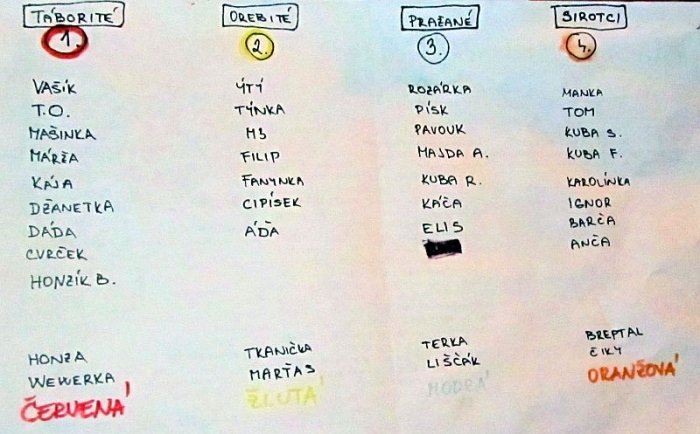 TÁBORITÉ
1.
VAŠÍK
T.O.
MAŠINKA
MÁRŽA
KÁJA
DŽANETKA
DÁDA
CVRČEK
HONZÍK B.
HONZA
WEWERKA
ČERVENÁ
OREBITÉ
2.
ÝTÝ
TÝNKA
MJ
FILIP
FANYNKA
CIPÍSEK
ÁĎA
TKANIČKA
MARŤAS
ŽLUTÁ
PRAŽANÉ
3.
ROZÁRKA
PÍSK
PAVOUK
MAJDA A.
KUBA R.
KÁČA
ELIS
TERKA
LIŠČÁK
MODRÁ
SIROTCI
4.
MANKA
TOM
KUBA S.
KUBA F.
KAROLÍNKA
IGNOR
BARČA
ANČA
BREPTAL
ČIKY
ORANŽOVÁ